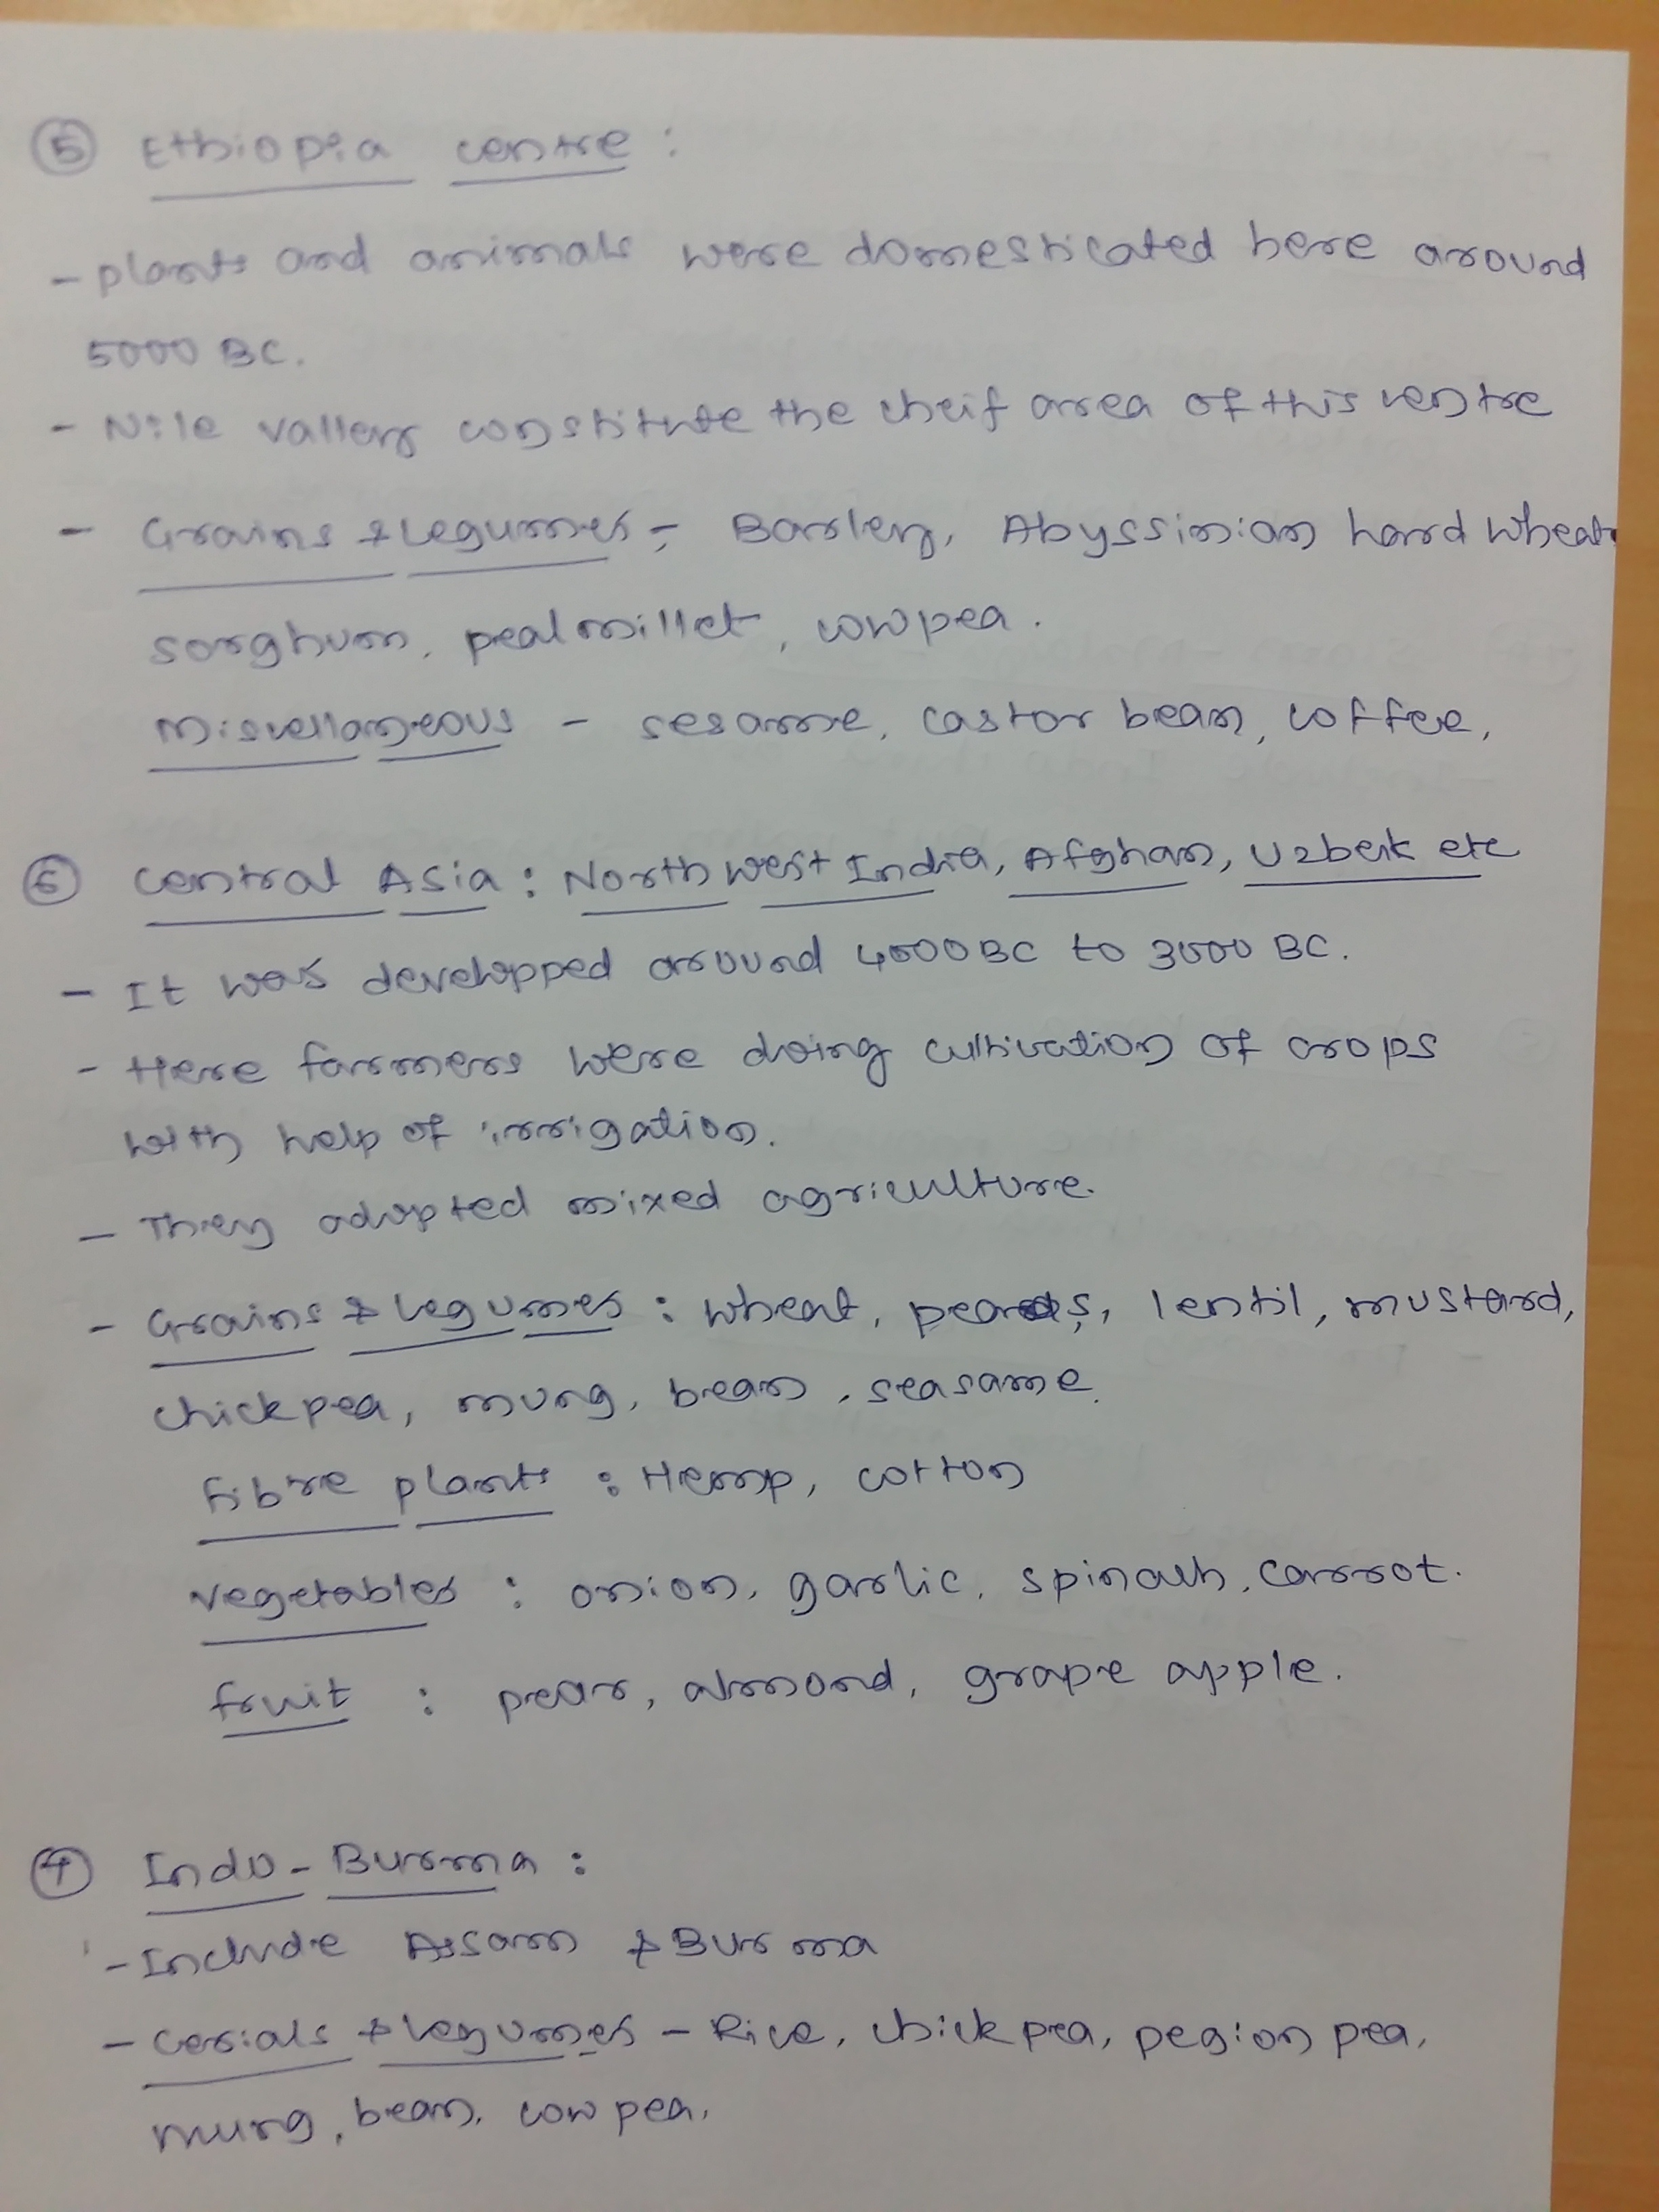 ⑤ Ethiopia centre :
- plants and animals were domesticated here around
5000 BC.
- Nile valley constitute the cheif area of this centre
- Grains & Legumes - Barley, Abyssinian hard wheat
sorghum, pealmillet, cowpea.
Miscellaneous - sesame, castor bean, coffee,
⑥ Central Asia : North West India, Afghan, Uzbek etc
- It was developped around 4000 BC to 3000 BC.
- Here farmers were doing cultivation of crops
with help of irrigation.
- They adopted mixed agriculture.
- Grains & legumes : wheat, peas, lentil, mustard,
chickpea, mung, bean, seasame.
Fibre plants : Hemp, cotton
Vegetables : onion, garlic, spinach, carrot.
fruit : pear, almond, grape apple.
⑦ Indo - Burma :
- Include Assam & Burma
- Cerials & legumes - Rice, chickpea, pegion pea,
mung, bean, cow pea,